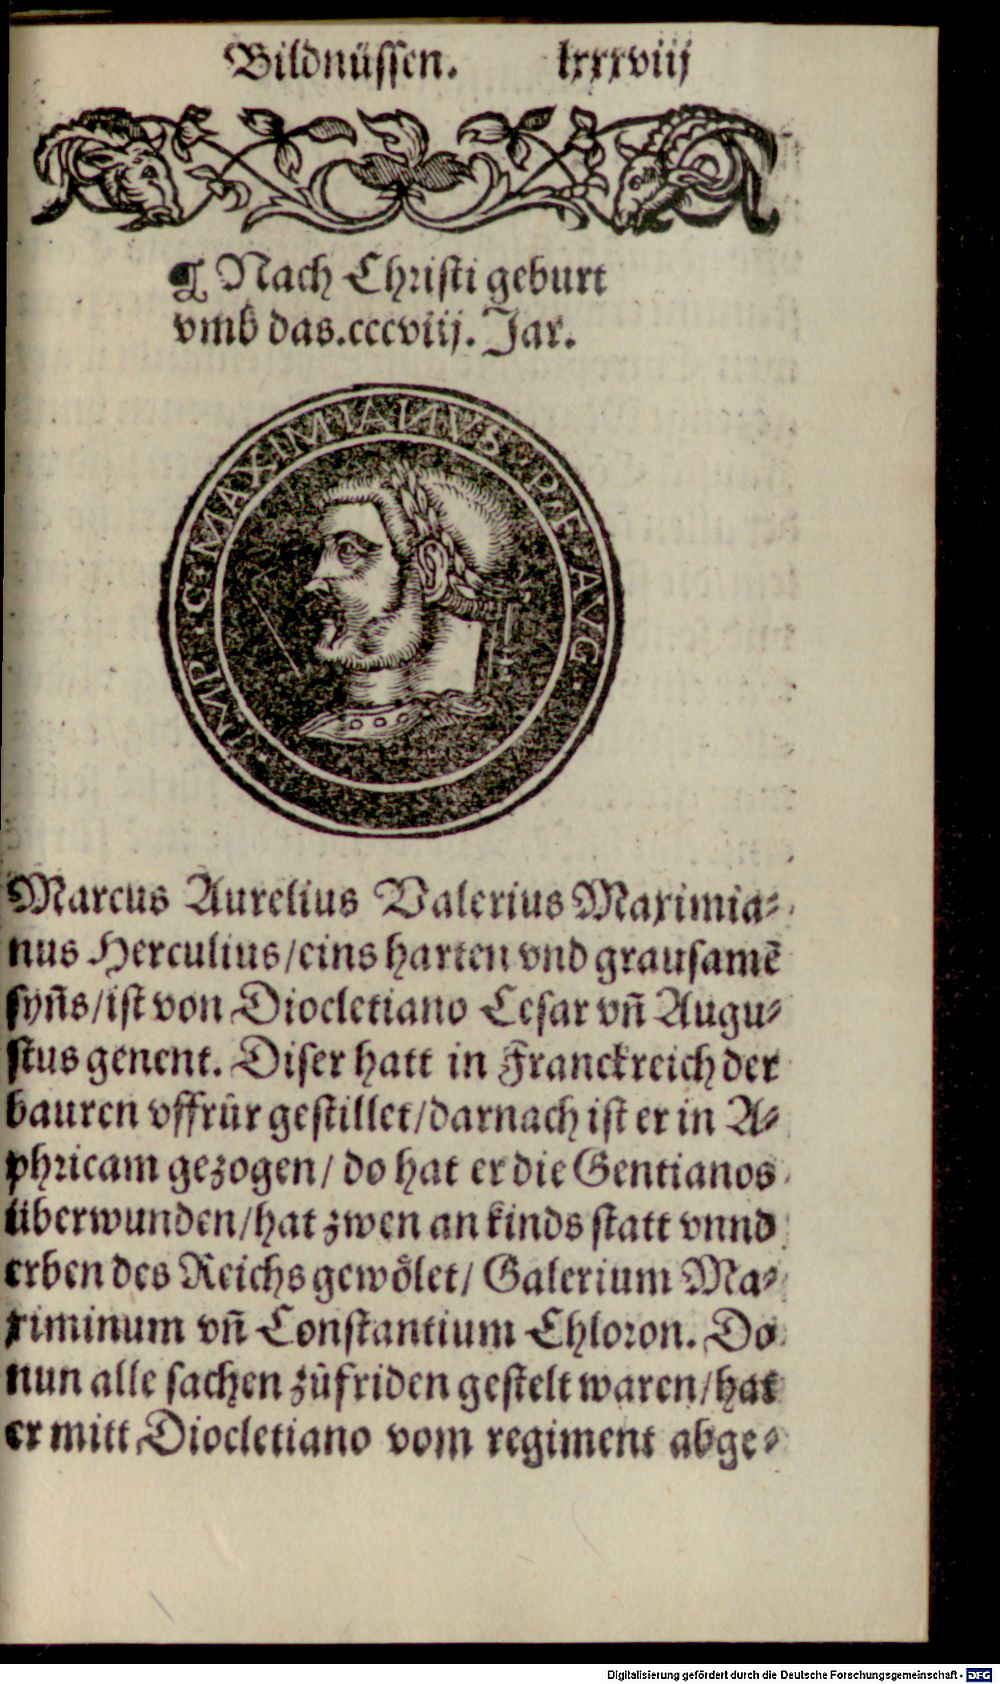 Bildnüssen. lxxxviij
¶ Nach Christi geburt
vmb das.cccviij. Jar.
IMP· C· MAXIMIANVS· P· F· AVG·
Marcus Aurelius Valerius Maximia⸗
nus Herculius/eins harten vnd grausamē
syn̄s/ist von Diocletiano Cesar vn̄ Augu⸗
stus genent. Diser hatt in Franckreich der
bauren vffrůr gestillet/darnach ist er in A⸗
phricam gezogen/ do hat er die Gentianos
überwunden/hat zwen an kinds statt vnnd
erben des Reichs gewoͤlet/ Galerium Ma⸗
ximinum vn̄ Constantium Chloron. Do
nun alle sachen zůfriden gestelt waren/hat
er mitt Diocletiano vom regiment abge⸗
Digitalisierung gefördert durch die Deutsche Forschungsgemeinschaft - DFG